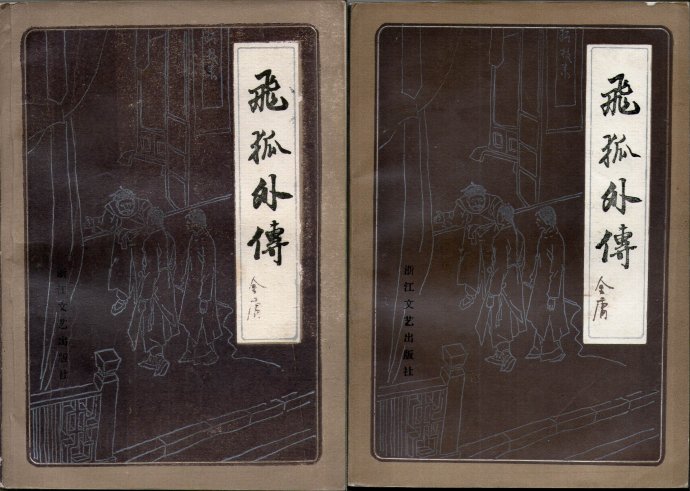 飛狐外傳
金庸
浙江文艺出版社
飛狐外傳
金庸
浙江文艺出版社